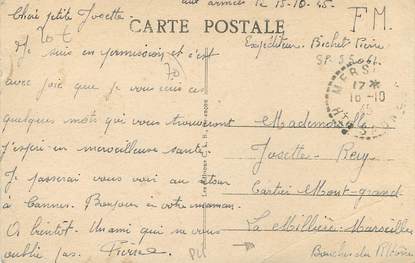 aux armées le 15-10-45
Chère petite Josette
CARTE POSTALE
F.M.
Je suis en permission et c'est
avec joie que je vous écris ces
quelques mots qui vous trouveront
j'espère en merveilleuse santé.
Je passerai vous voir au retour
à Cannes. Bonjour à votre maman.
A bientôt. Un ami qui ne vous
oublie pas. Pierre
Expéditeur. Bichet Pierre
SP
MERS
17
16-10
Mademoiselle
Josette Rey
Cartier Mont-grand
La Millière Marseille
Bouches du Rhône